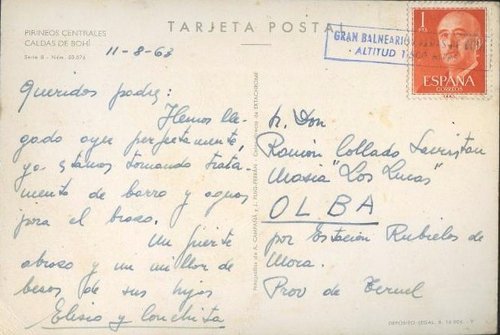 TARJETA POSTAL
PIRINEOS CENTRALES
CALDAS DE BOHÍ
Serie B - Núm.
11-8-63
GRAN BALNEARIO
ALTITUD
1
PTA
ESPAÑA
CORREOS
Queridos padres:
Hemos lle-
gado ayer perfectamente,
ya estamos tomando trata-
miento de barro y aguas
para el brazo.
Un fuerte
abrazo y un millon de
besos de sus hijos
Elisio y Conchita
Sr. Don
Ramón Collado
Masia "Los Lucas"
OLBA
por Estación Rubielos de
Mora.
Prov de Teruel
DEPÓSITO LEGAL B.